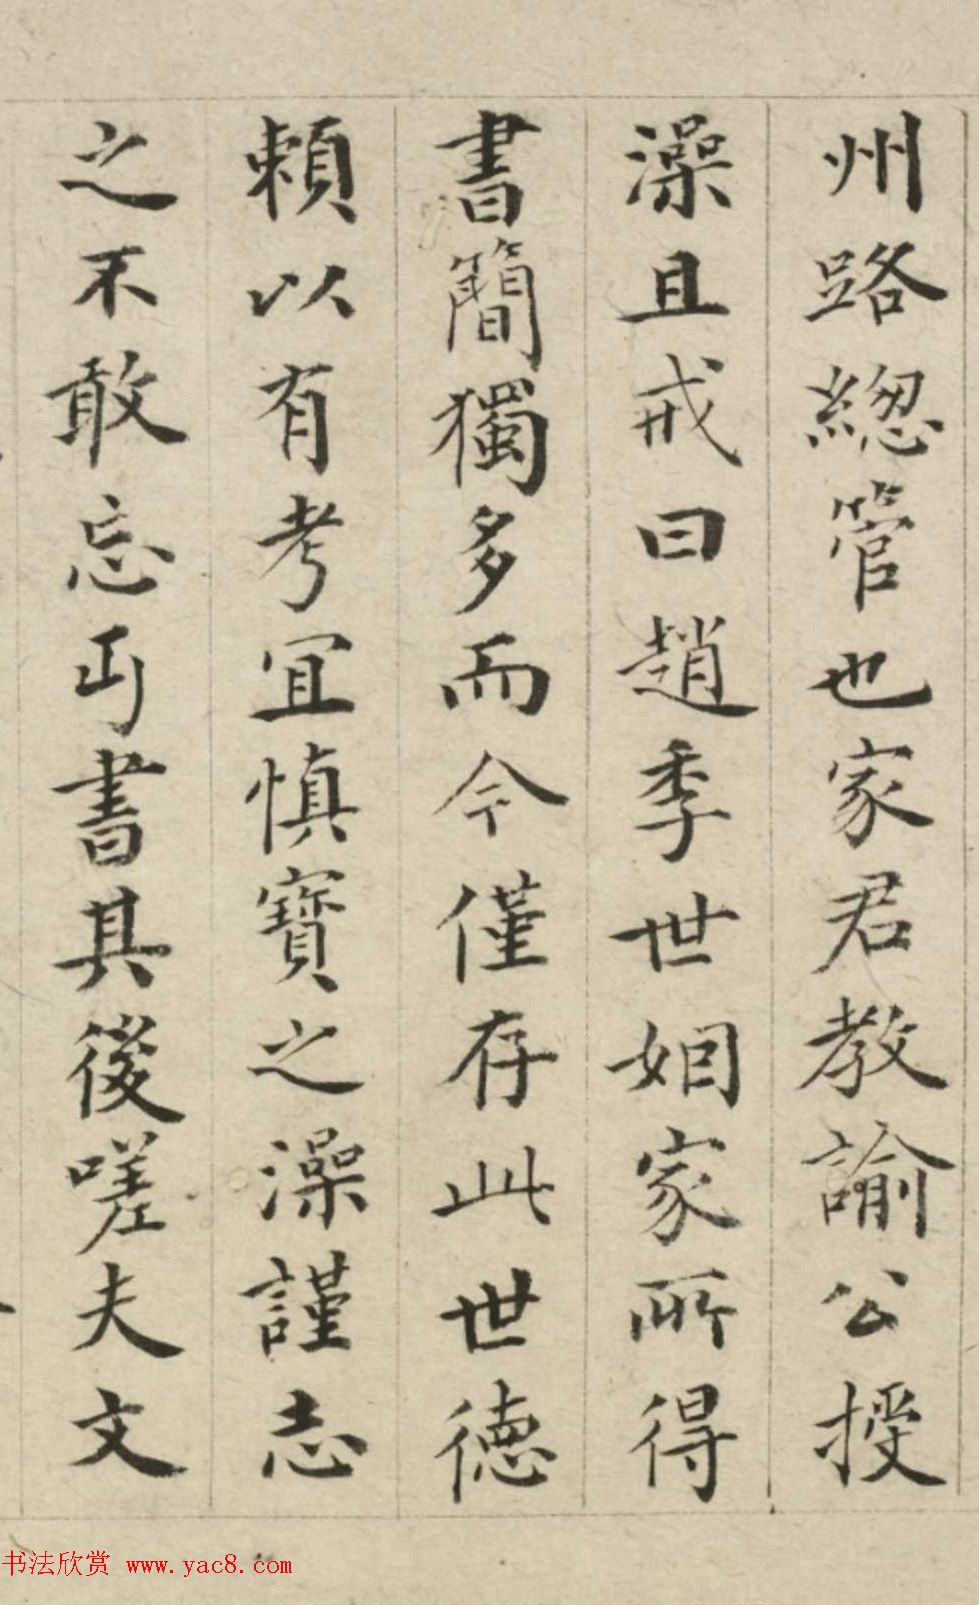 州路緫管也家君教諭公授
澡且戒曰趙季世姻家所得
書簡獨多而今僅存此世德
賴以有考宜慎寶之澡謹志
之不敢忘丐書其後嗟夫文
书法欣赏 www.yac8.com